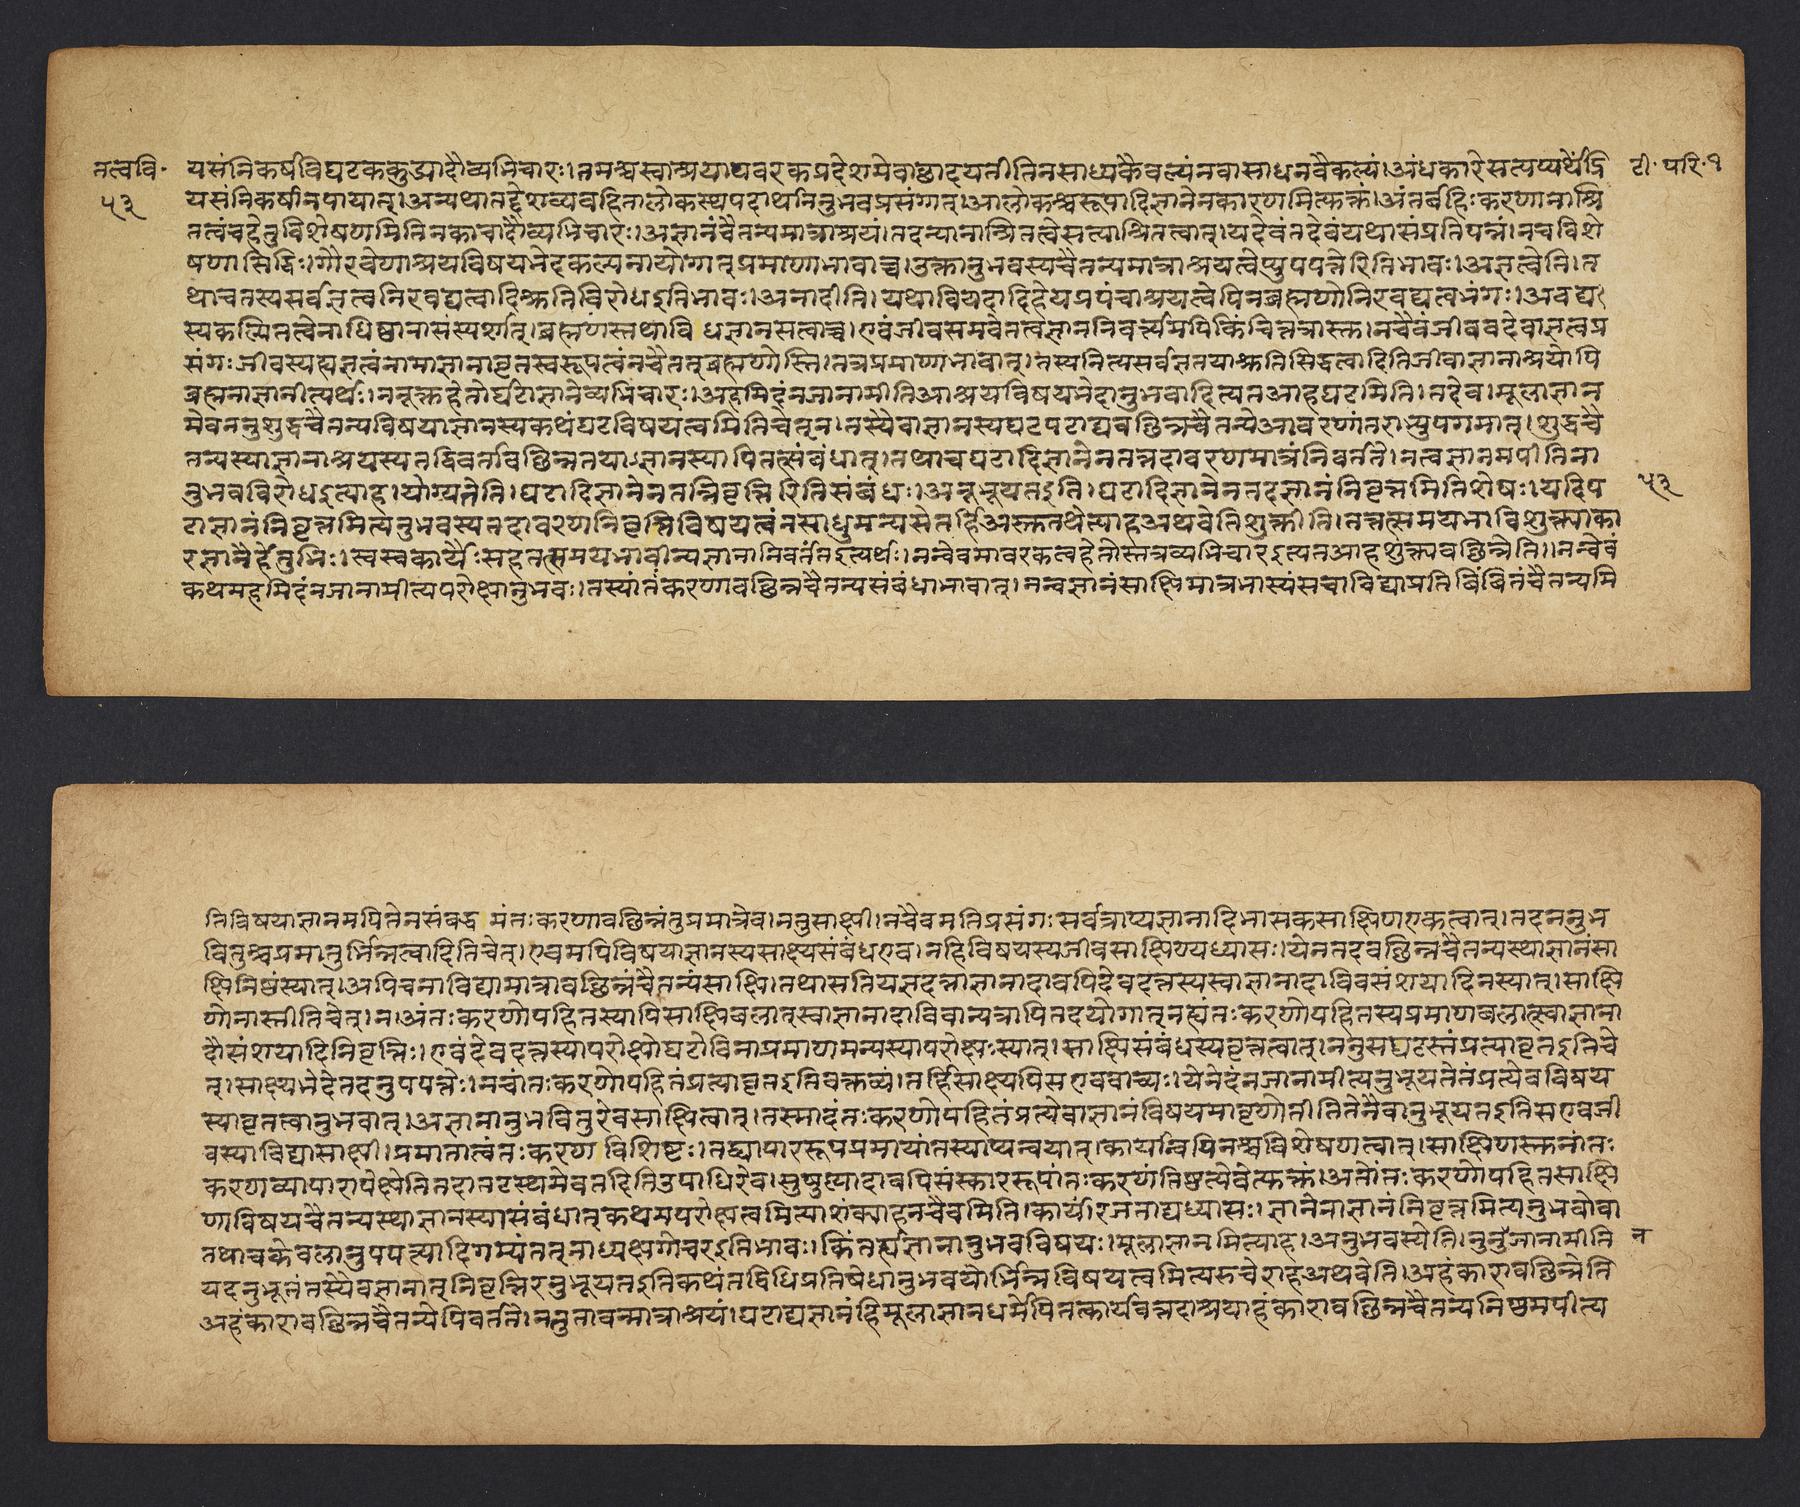 तत्ववि॰ यसंनिकर्षविघटककुड्यादौव्यभिचारः।तमश्चस्वाश्रयाथवरकप्रदेशमेवाछादयतीतिनसाध्यकैवल्यंनवासाधनवैकल्यं।अंधकारेसत्यप्यर्थेंद्रि टी॰परि॰१
५३ यसंनिकर्षानपायात्।अन्यथातद्देशव्यवहितालोकस्थपदार्थाननुभवप्रसंगात्।आलोकश्चरूपादिज्ञानेनकारणमित्युक्तं।अंतर्बहिःकरणानाश्रि
तत्वंचहेतुविशेषणमितिनकाचादौव्यभिचारः।अज्ञानंचैतन्यमात्राश्रयं।तदन्यानाश्रितत्वेसत्याश्रितत्वात्।यदेवंतदेवंयथासंप्रतिपन्नं।नचविशे
षणासिद्धिः।गौरवेणाश्रयविषयभेदकल्पनायोगात्प्रमाणाभावाच्च।उक्तानुभवस्यचैतन्यमात्राश्रयत्वेप्युपपत्तेरितिभावः।अज्ञत्वेति।त
थाचतस्यसर्वज्ञत्वनिरवद्यत्वादिश्रुतिविरोधइतिभावः।अनादीति।यथावियदादिहेयप्रपंचाश्रयत्वेपिनब्रह्मणोनिरवद्यत्वभंगः।अवद्य
स्यकल्पितत्वेनाधिष्ठानासंस्पर्शात्।ब्रह्मणस्तथावि धज्ञानसत्वाच्च।एवंजीवसमवेतत्वज्ञाननिवर्त्त्यमपिकिंचित्तत्रास्तु।नचैवंजीववदेवाज्ञत्वप्र
संगःजीवस्यह्यज्ञत्वंनामाज्ञानावृतस्वरूपत्वंनचैतत्ब्रह्मणोस्ति।तत्रप्रमाणाभावात्।तस्यनित्यसर्वज्ञतयाश्रुतिसिद्धत्वादितिजीवाज्ञानाश्रयोपि
ब्रह्मनाज्ञानीत्यर्थः।ननूक्तहेतोर्घटाज्ञानेव्यभिचारः।अहमिदंनजानामीतिआश्रयविषयभेदानुभवादित्यतआहघटमिति।तदेव।मूलाज्ञान
मेवननुशुद्धचैतन्यविषयाज्ञानस्यकथंघटविषयत्वमितिचेत्न।तस्येवाज्ञानस्यघटपटाद्यवछिन्नचैतन्येआवरणांतराभ्युपगमात्।शुद्धचै
तन्यस्याज्ञानाश्रयस्यतद्विवर्तावछिन्नतयाऽज्ञानस्यापितत्संबंधात्।तथाचघटादिज्ञानेनतत्तदावरणमात्रंनिवर्तते।नत्वज्ञानमपीतिना
नुभवविरोधइत्याह।योग्यतेति।घटादिज्ञानेनतन्निवृत्तिरितिसंबंधः।अनुभूयतइति।घटादिज्ञानेनतदज्ञानंनिवृत्तमितिशेषः।यदिप ५३
टाज्ञानंनिवृत्तमित्यनुभवस्यतदावरणनिवृत्तिविषयत्वंनसाधुमन्यसेतर्हिअस्तुतथेत्याहअथवेतिशुक्तीति।तत्तत्समयभाविशुक्त्याका
रज्ञानैर्हेतुभिः।स्वस्वकार्यैःसहतत्समयभावीन्यज्ञानानिवर्ततइत्यर्थः।नन्वेवमावरकत्वहेतोस्तत्रव्यभिचारइत्यतआहशुक्त्यवछिन्नेति।।नन्वेवं
कथमहमिदंनजानामीत्यपरोक्षानुभवः।तस्यांतंकरणावछिन्नचैतन्यसंबंधाभावात्।नन्वज्ञानंसाक्षिमात्रभास्यंसचाविद्याप्रतिबिंबितंचैतन्यमि
तिविषयाज्ञानमपितेनसंबद्ध मंतःकरणावछिन्नंतुप्रमात्रेव।ननुसाक्षी।नचैवमतिप्रसंगःसर्वत्राप्यज्ञानादिभासकसाक्षिणएकत्वात्।तदननुभ
वितुश्चप्रमातुर्भिन्नत्वादितिचेत्।एवमपिविषयाज्ञानस्यसाक्ष्यसंबंधएव।नहिविषयस्यजीवसाक्षिण्यध्यासः।येनतदवछिन्नचैतन्यस्थाज्ञानंसा
क्षिनिष्ठंस्यात्।अपिचनाविद्यामात्रावछिन्नंचैतन्यंसाक्षि।तथासतियज्ञदत्ताज्ञानादावपिदेवदत्तस्यस्वाज्ञानादाविवसंशयादिनस्यात्।साक्षि
णोनास्तीतिचेत्।न।अंतःकरणोपहितस्यापिसाक्षिबलात्स्वाज्ञानादाविवान्यत्रापितदयोगात्नह्यंतःकरणोपहितस्यप्रमाणबलात्स्वाज्ञाना
दौसंशयादिनिवृत्तिः।एवंदेवदत्तस्यापरोक्षोघटोविनाप्रमाणमन्यस्यापरोक्षःस्यात्।साक्षिसंबंधस्यवृत्तत्वात्।ननुसघटस्तंप्रत्यावृतइतिचे
त्।साक्ष्यभेदेतदनुपपत्तेः।नचांतःकरणोपहितंप्रत्यावृतइतिवक्तव्यं।तर्हिसाक्ष्यपिसएववाच्यः।येनेदंनजानामीत्यनुभूयतेतंप्रत्येवविषय
स्यावृतत्वानुभवात्।अज्ञानानुभवितुरेवसाक्षित्वात्।तस्मादंतःकरणोपहितंप्रत्येवाज्ञानंविषयमावृणोतीतितेनैवानुभूयतइतिसएवजी
वस्याविद्यासाक्षी।प्रमातात्वंतःकरण विशिष्टः।तद्व्यापाररूपप्रमायांतस्याप्यन्वयात्।कार्यान्वयिनश्चविशेषणत्वात्।साक्षिणस्तुनांतः
करणव्यापारापेक्षेतितदातटस्थमेवतदितिउपाधिरेव।सुषुप्त्यादावपिसंस्काररूपांतःकरणंतिष्ठत्येवेत्युक्तं।अतोंतःकरणोपहितसाक्षि
णाविषयचैतन्यस्थाज्ञानस्यासंबंधात्कथमपरोक्षत्वमित्याशंक्याहनचैवमिति।कार्यारजताद्यध्यासः।ज्ञानेनाज्ञानंनिवृत्तमित्यनुभवोवा
तथाचकेवलानुपपत्त्यादिगम्यंतत्नाध्यक्षगोचरइतिभावः।किंतर्ह्यज्ञानानुभवविषयः।मूलाज्ञानमित्याह।अनुभवस्येति।नुनुजानामीति न
यदनुभूतंतस्येवज्ञानात्निवृत्तिरनुभूयतइतिकथंतद्विधिप्रतिषेधानुभवयोर्भिन्नविषयत्वमित्यरुचेराहअथवेति।अहंकारावछिन्नेति
अहंकारावछिन्नचैतन्येपिवर्तते।ननुतावन्मात्राश्रयं।घटाद्यज्ञानंहिमूलाज्ञानधर्मेपितत्कार्यवत्तदाश्रयाहंकारावछिन्नचैतन्यनिष्ठमपीत्य